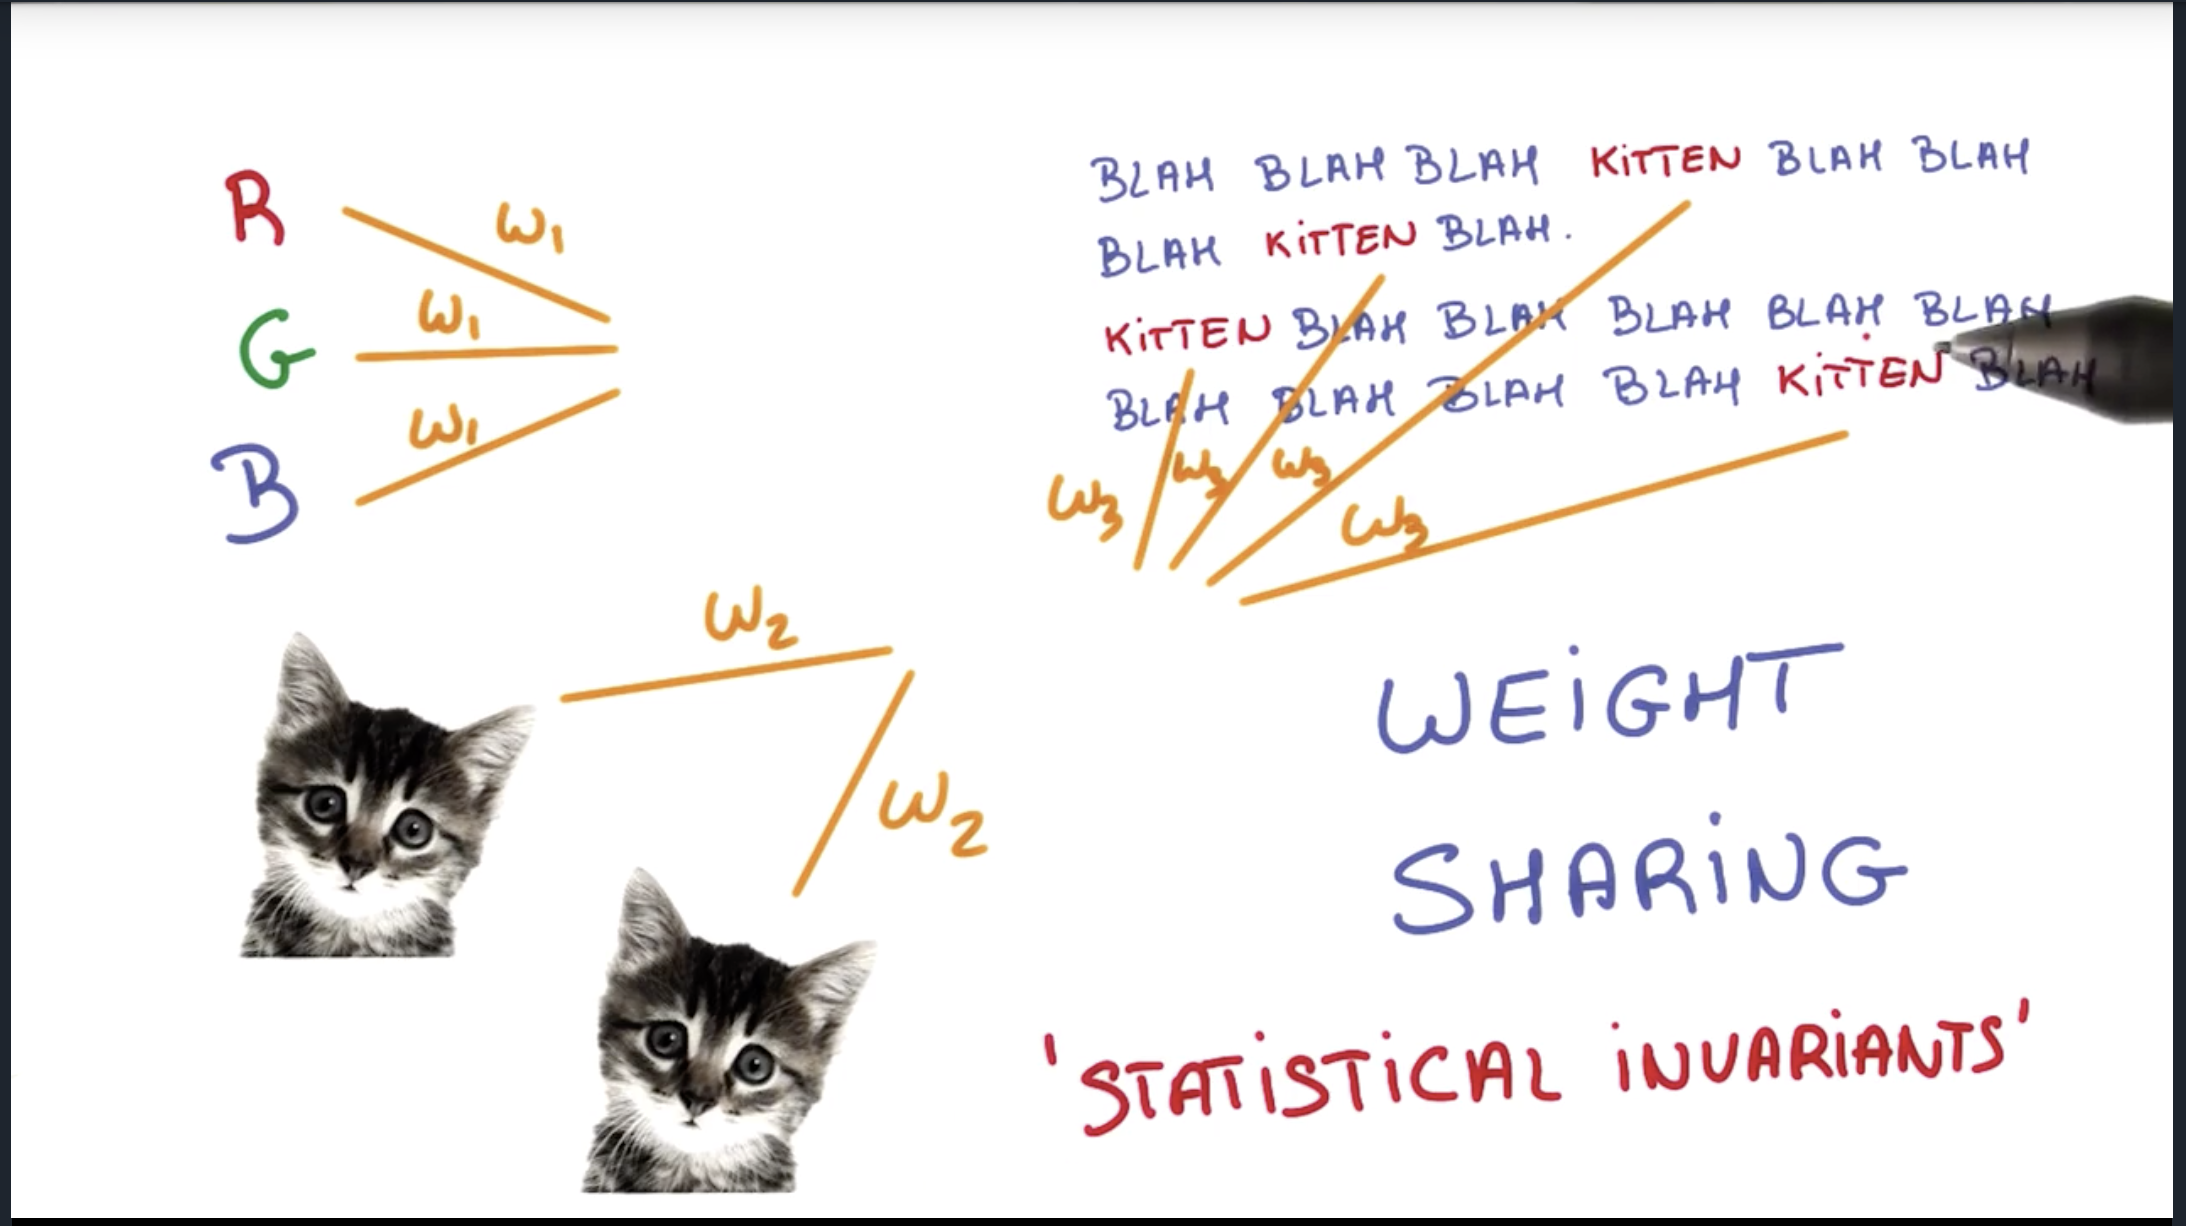 R
ω1
G
ω1
B
ω1
BLAH BLAH BLAH KiTTEN BLAH BLAH
BLAH KiTTEN BLAH.
KiTTEN BLAH BLAH BLAH BLAH BLAH
BLAH BLAH BLAH BLAH KiTTEN BLAH
ω3
ω3
ω3
ω3
ω2
ω2
WEiGHT
SHARiNG
'STATiSTiCAL iNVARiANTS'